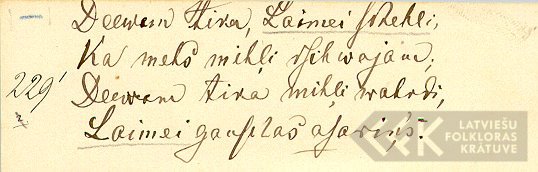 Deewam tika, Laimei schehli,
Ka mehs mihļi dsihwajam;
229 Deewam tika mihļi wahrdi,
Laimei gauschas asariņs.
LATVIEŠU
FOLKLORAS
KRĀTUVE